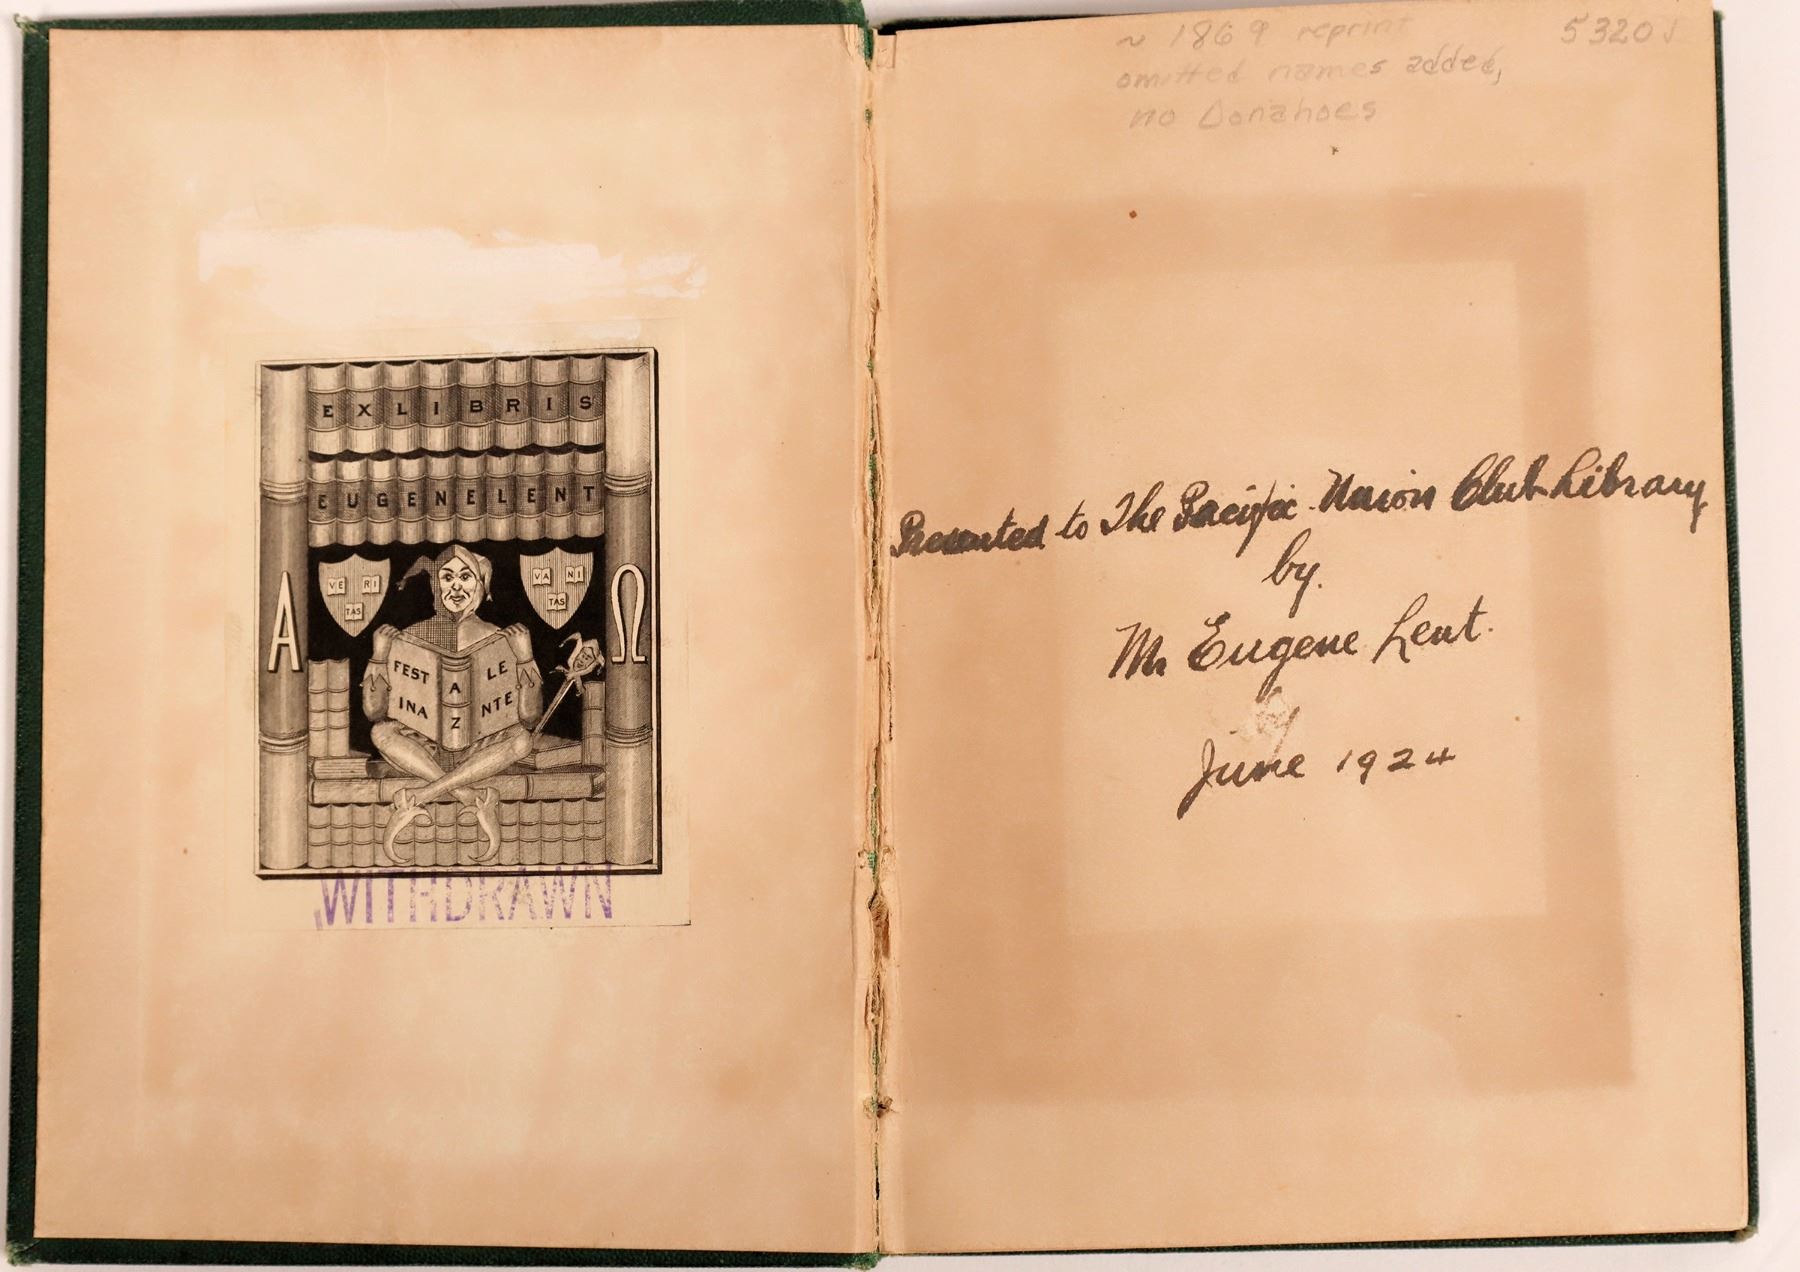 EXLIBRIS
EUGENELENT
VE RI
TAS
VA NI
TAS
A
Ω
FEST
INA
A
Z
LE
NTE
WITHDRAWN
~ 1869 reprint
omitted names added,
no Donahoes
5320
Presented to The Pacific-Union Club Library
by.
Mr Eugene Lent.
June 1924